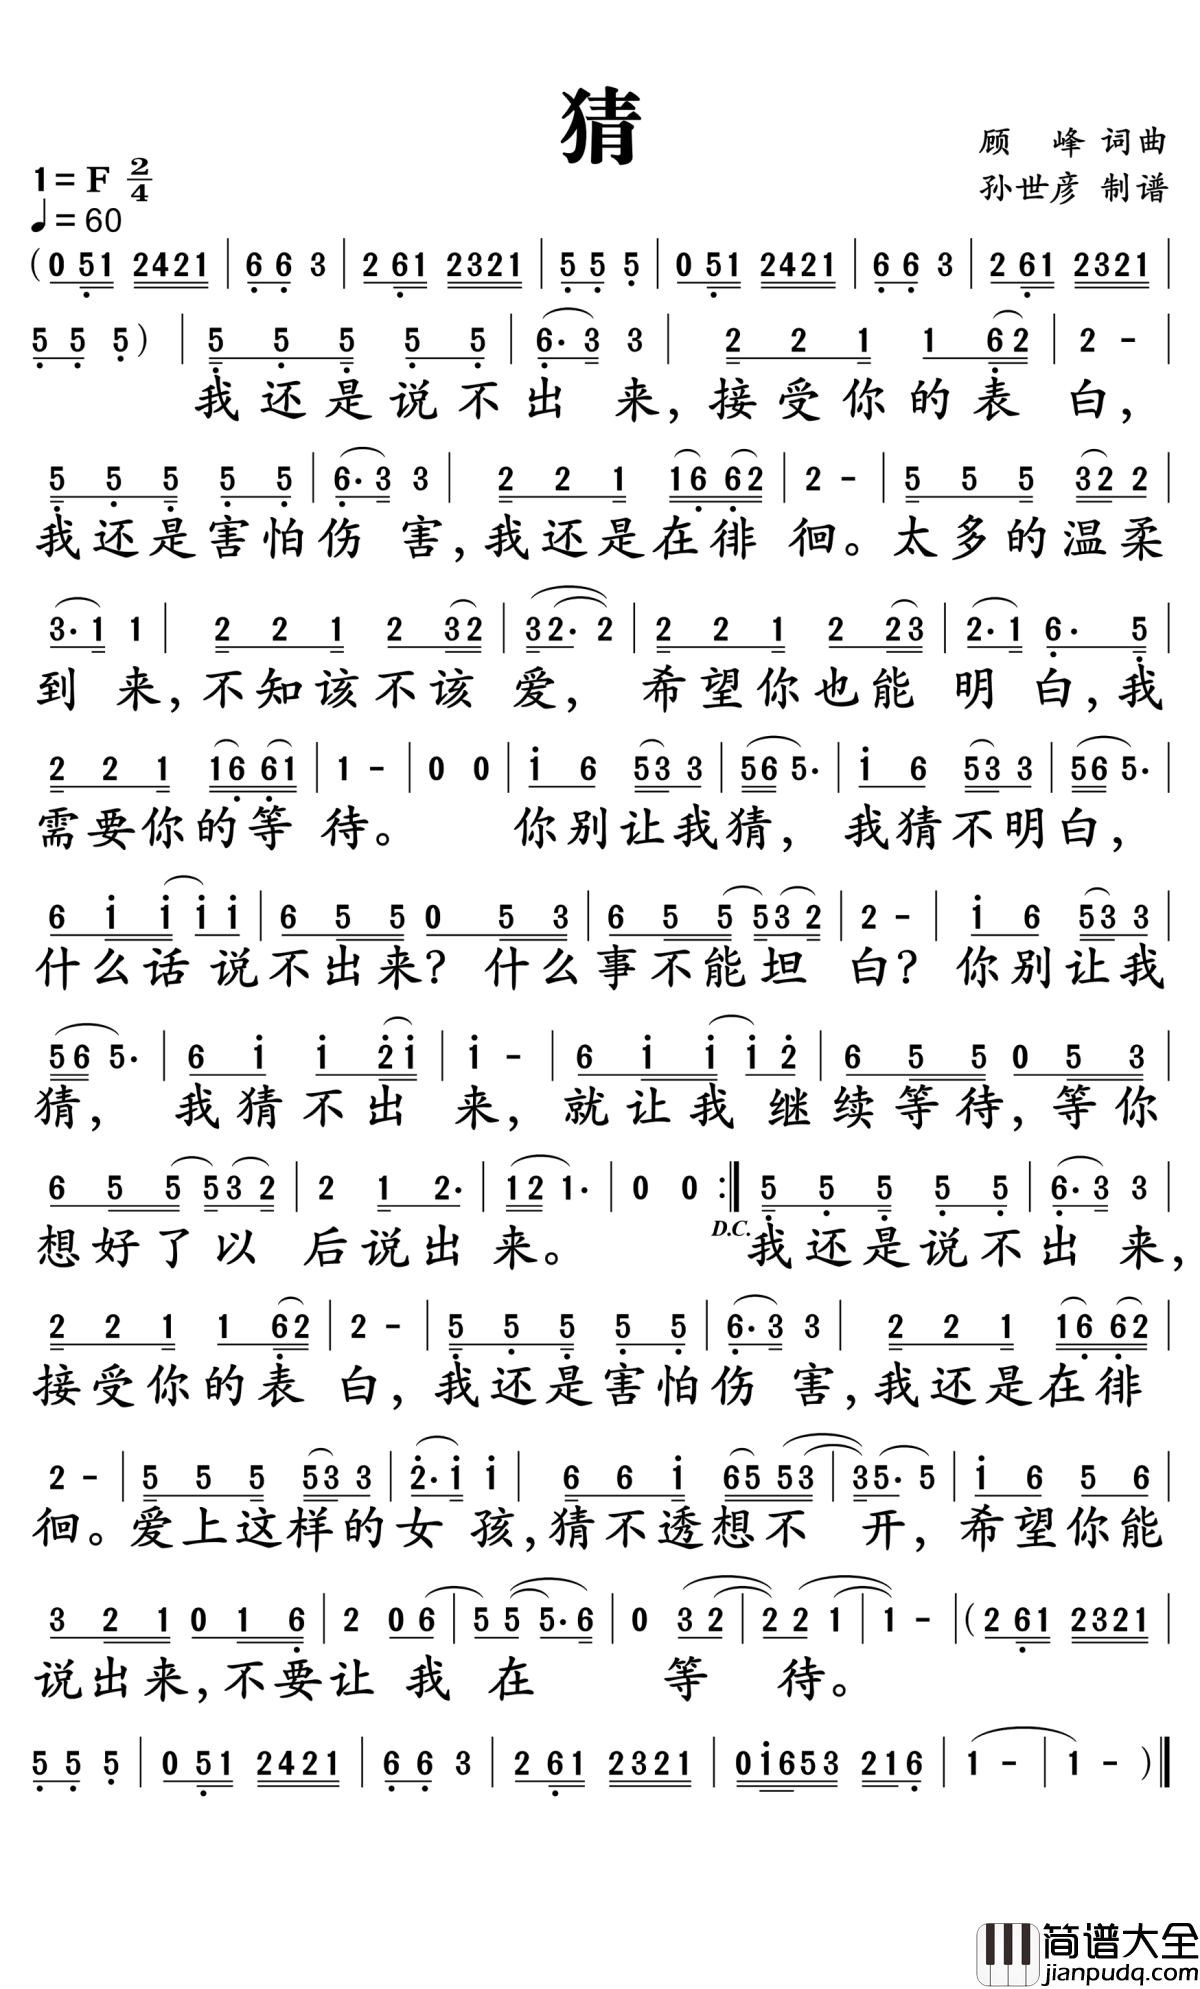 猜
顾 峰 词曲
1= F 2/4
孙世彦 制谱
♩= 60
( 0 5̣1 2421 | 6̣ 6̣ 3 | 2 6̣1 2321 | 5̣ 5̣ 5̣ | 0 5̣1 2421 | 6̣ 6̣ 3 | 2 6̣1 2321 |
5̣ 5̣ 5̣ ) | 5̣ 5̣ 5̣ 5̣ 5̣ | 6̣· 3 3 | 2 2 1 1 6̣2 | 2 - |
我还是说不出 来, 接受你的表 白,
5̣ 5̣ 5̣ 5̣ 5̣ | 6̣· 3 3 | 2 2 1 16̣ 6̣2 | 2 - | 5 5 5 32 2 |
我还是害怕伤 害, 我还是在徘 徊。太多的温柔
3· 1 1 | 2 2 1 2 32 | 3 2· 2 | 2 2 1 2 23 | 2· 1 6̣· 5̣ |
到 来, 不知该不该 爱, 希望你也能 明 白, 我
2 2 1 16̣ 6̣1 | 1 - | 0 0 | i 6 53 3 | 56 5· | i 6 53 3 | 56 5· |
需要你的等 待。 你别让我猜, 我猜不明白,
6 i i i i | 6 5 5 0 5 3 | 6 5 5 53 2 | 2 - | i 6 53 3 |
什么话 说不出来? 什么事不能坦 白? 你别让我
56 5· | 6 i i 2̇i | i - | 6 i i i 2̇ | 6 5 5 0 5 3 |
猜, 我猜不出 来, 就让我 继续等待, 等你
6 5 5 53 2 | 2 1 2· | 12 1· | 0 0 :‖ 5̣ 5̣ 5̣ 5̣ 5̣ | 6̣· 3 3 |
想好了以 后说出 来。 D.C. 我还是说不出 来,
2 2 1 1 6̣2 | 2 - | 5̣ 5̣ 5̣ 5̣ 5̣ | 6̣· 3 3 | 2 2 1 16̣ 6̣2 |
接受你的表 白, 我还是害怕伤 害, 我还是在徘
2 - | 5 5 5 53 3 | 2̇· i i | 6 6 i 65 53 | 35· 5 | i 6 5 6 |
徊。爱上这样的女 孩, 猜不透想不 开, 希望你能
3 2 1 0 1 6̣ | 2 0 6 | 5 5 5· 6 | 0 3 2 | 2 2 1 | 1 - | ( 2 6̣1 2321 |
说出来, 不要让 我 在 等 待。
5̣ 5̣ 5̣ | 0 5̣1 2421 | 6̣ 6̣ 3 | 2 6̣1 2321 | 0i653 216̣ | 1 - | 1 - ) ‖
简谱大全
jianpudq.com